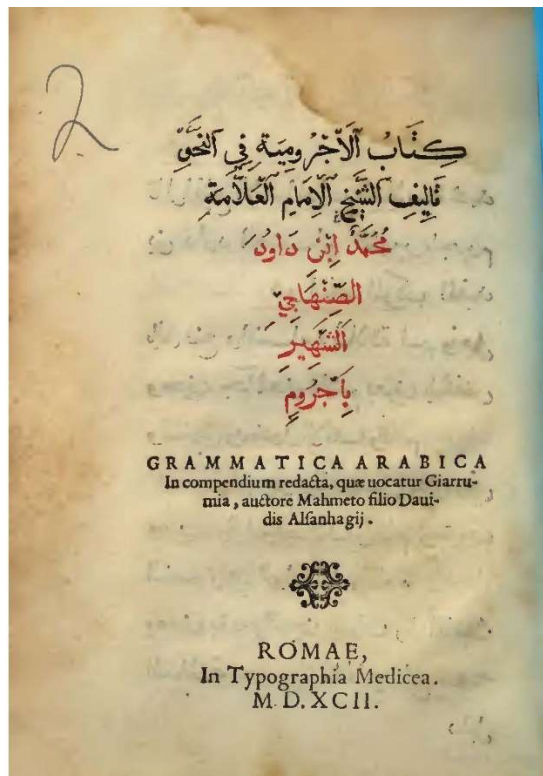 2
كِتَابُ ٱلْأَجْرُومِيَةِ فِي ٱلنَّحْوِ
تَالِيفِ ٱلشَّيْخِ ٱلْإِمَامِ ٱلْعَلَّامَةِ
مُحَمَّدْ اِبْنِ دَاوُدَ
الصِّنْهَاجِيِّ
الشَّهِيرِ
بِاَجْرُومِ
GRAMMATICA ARABICA
In compendium redacta, quæ uocatur Giarru-
mia, auctore Mahmeto filio Daui-
dis Alſanhagij.
ROMAE,
In Typographia Medicea.
M D. XCII.